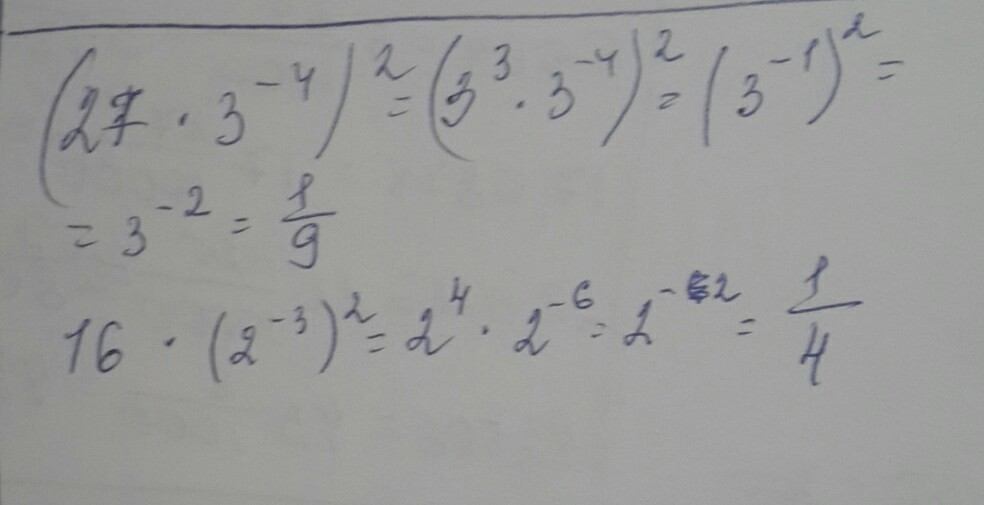 (27 · 3⁻⁴)² = (3³ · 3⁻⁴)² = (3⁻¹)² =
= 3⁻² = 1/9
16 · (2⁻³)² = 2⁴ · 2⁻⁶ = 2⁻² = 1/4